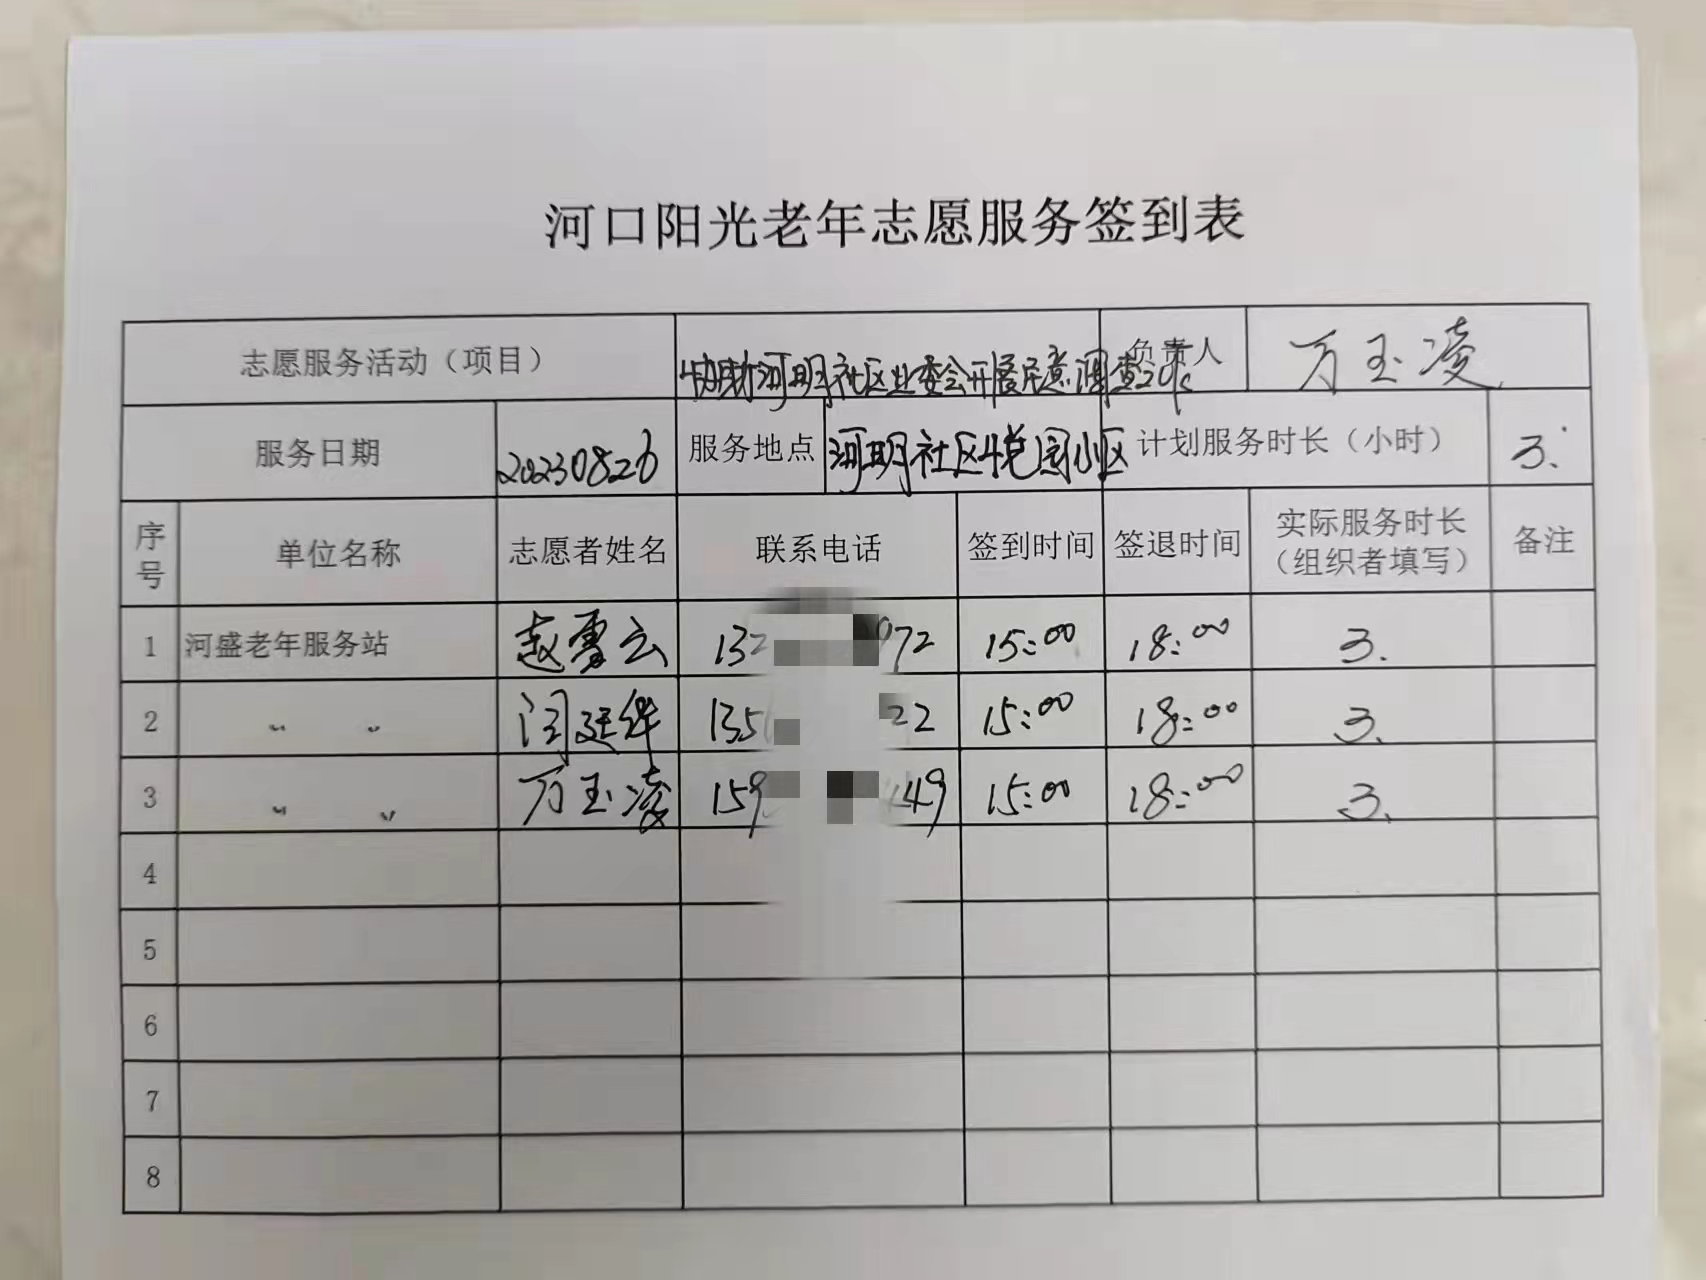 河口阳光老年志愿服务签到表
志愿服务活动（项目） 协助河明社区业委会开展民意调查20户 负责人 万玉凌
服务日期 20230826 服务地点 河明社区悦园小区 计划服务时长（小时） 3.
序号 单位名称 志愿者姓名 联系电话 签到时间 签退时间 实际服务时长（组织者填写） 备注
1 河盛老年服务站 赵雪云 132 972 15:00 18:00 3.
2 〃 〃 闫廷华 135 22 15:00 18:00 3.
3 〃 〃 万玉凌 159 449 15:00 18:00 3.
4
5
6
7
8